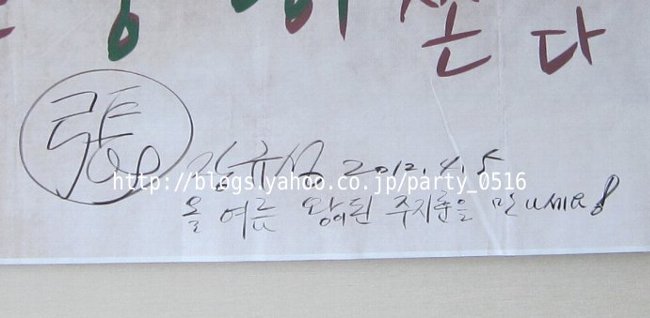 다
張 장규성 2012.4.5
http://blogs.yahoo.co.jp/party_0516
올 여름 왕이된 주지훈을 만나세요!